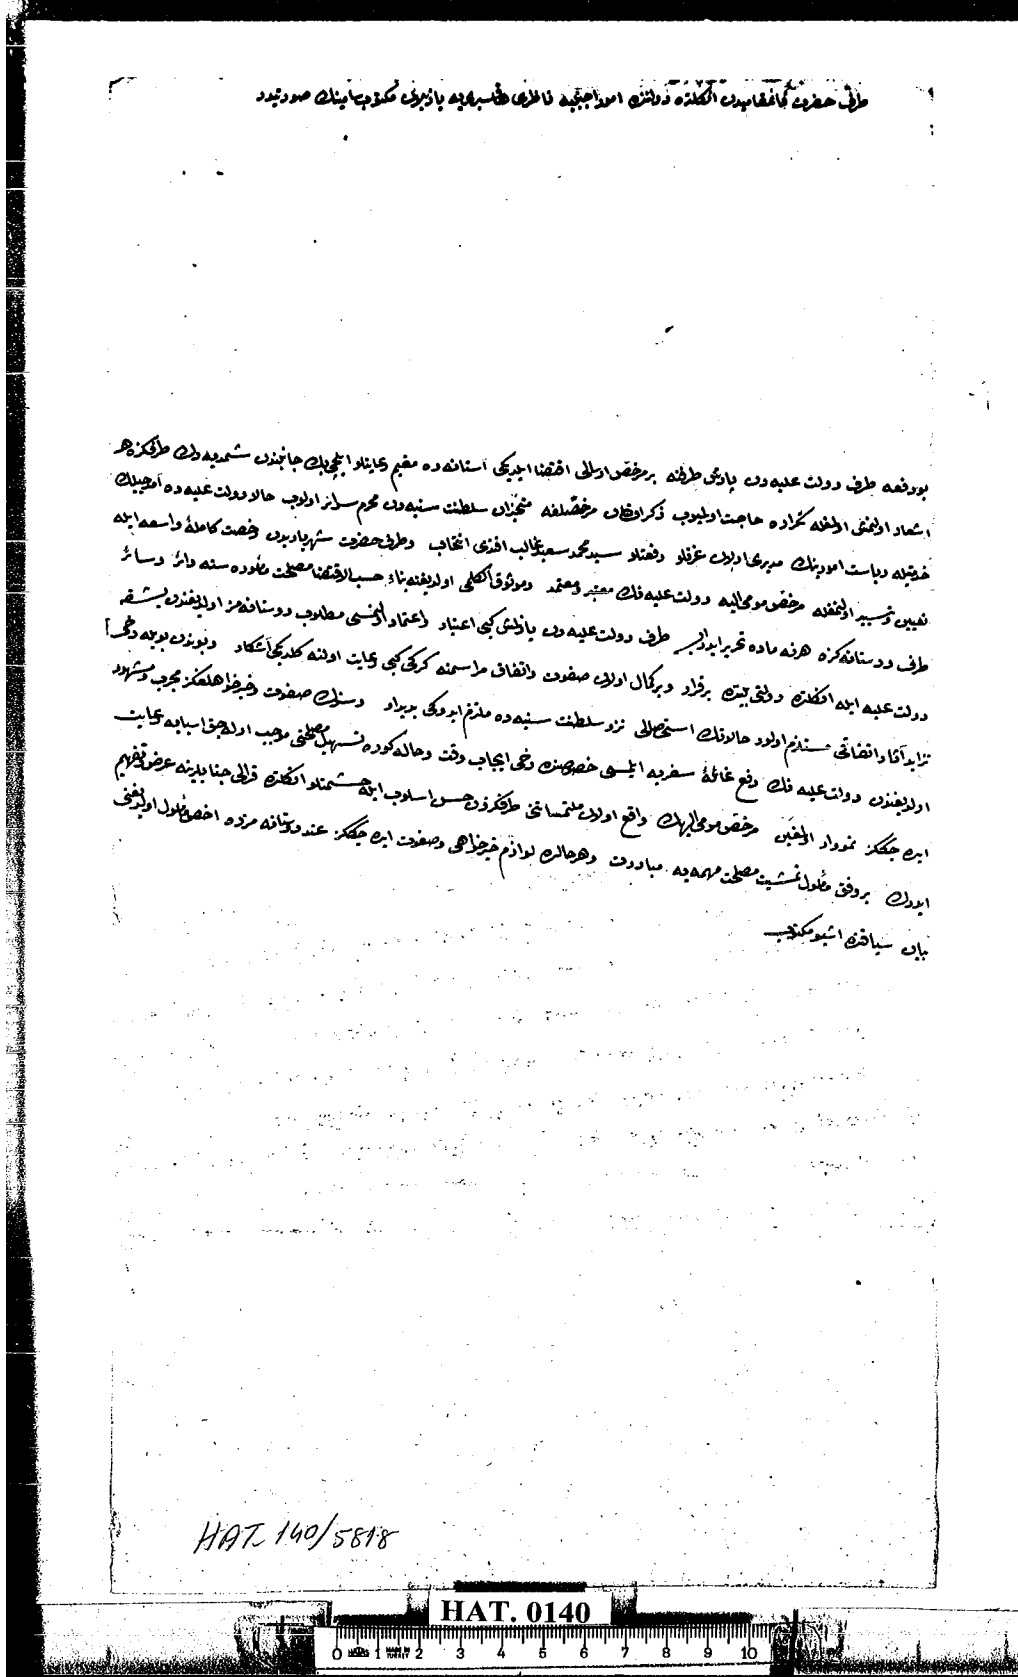 طرف حضرت قائممقاميدن انكلتره دولتنك امور اجنبيه ناظرى يه يازيلان مكتوب سامينك صورتيدر
بو دفعه طرف دولت عليه دن پاريس طرفنه بر مرخص ارسالى اقتضا ايلديكى آستانه ده مقيم رعايتلو ايلچى بك جانبندن شمديه دك طرفكزه هر
اشعار اولنمش اولمغله تكراره حاجت اولميوب ذكر اولنان مرخصلغه متحيزان سلطنت سنيه دن محرم سرائر اولوب حالا دولت عليه ده آمدجيلك
خدمتيله رياست امورينك مديرى اولان عزتلو رفعتلو سيد محمد سعيد غالب افندى انتخاب و طرف حضرت شهرياريدن رخصت كامله و واسعه ايله
تعيين و تسيير اولنمغله مرخص مومى اليه دولت عليه نك معتبر و معتمد و موثوق الكلمى اولديغنه بناء حسب الاقتضا مصلحت مأموره سنه دائر و سائر
طرف دوستانه كزه هر نه ماده تحرير ايدر ايسه طرف دولت عليه دن يازلمش كبى اعتبار و اعتماد اولنمسى مطلوب دوستانه مز اولديغندن بشقه
دولت عليه ايله انكلتره دولتى بيننده برقرار و بركمال اولان صفوت و اتفاق مراسمنه كركى كبى رعايت اولنه كلديكى آشكار و بوندن بويله دخى
تزايد آثار و اتفاقى مستلزم اولور حالاتك استحصالى نزد سلطنت سنيه ده ملتزم ايدوكى بديدار و سزك صفوت و خيرخواهلغكز مجرب و مشهود
اولديغندن دولت عليه نك دفع غائله سفريه ايلمسى خصوصنده دخى ايجاب وقت و حاله كوره تسهيل مصلحتى موجب اوله جق اسبابه رعايت
ايده جككز نمودار اولمغين مرخص مومى اليهك واقع اولان ملتمساتنى طرفكزدن حسن اسلوب ايله حشمتلو انكلتره قرالى جنابلرينه عرض و تفهيم
ايدرك بر وفق مأمول تمشيت مصلحت مهمه يه مبادرت و هر حالده لوازم خيرخواهى و صفوت ايده جككز عند دوستانه مزده اخص مأمول اولديغنى
بيان سياقنده اشبو مكتوب
HAT 140/5818
HAT. 0140
0 1 2 3 4 5 6 7 8 9 10